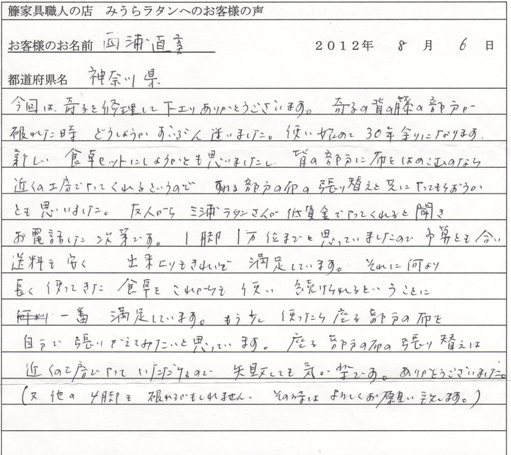 籐家具職人の店 みうらラタンへのお客様の声
お客様のお名前 西浦直美 2012年 8月 6日
都道府県名 神奈川県
今回は、椅子を修理して下さりありがとうございます。椅子の背の籐の部分が
破れた時 どうしようか ずいぶん迷いました。使い始めて 30年余りになります。
新しい 食卓セットにしようかとも思いましたし、背の部分に布をはめこむのなら
近くの工房でやってくれるというので 座る部分の布の張り替えと共にやってもらおうか
とも思いました。友人から 三浦ラタンさんが低賃金でやってくれると聞き
お電話した次第です。1脚 1万位までと思っていましたので予算とも合い
送料も安く 出来上りもきれいで 満足しています。それに何より
長く使ってきた 食卓を これからも 使い 続けられるということに
一番 満足しています。もう少し 使ったら 座る部分の布を
自分で張りかえてみたいと思っています。座る部分の布の張り替えは
近くの工房でやっていただけるので 失敗しても気が楽です。ありがとうございました。
(又他の4脚も破れるかもしれません。その時はよろしくお願い致します。)